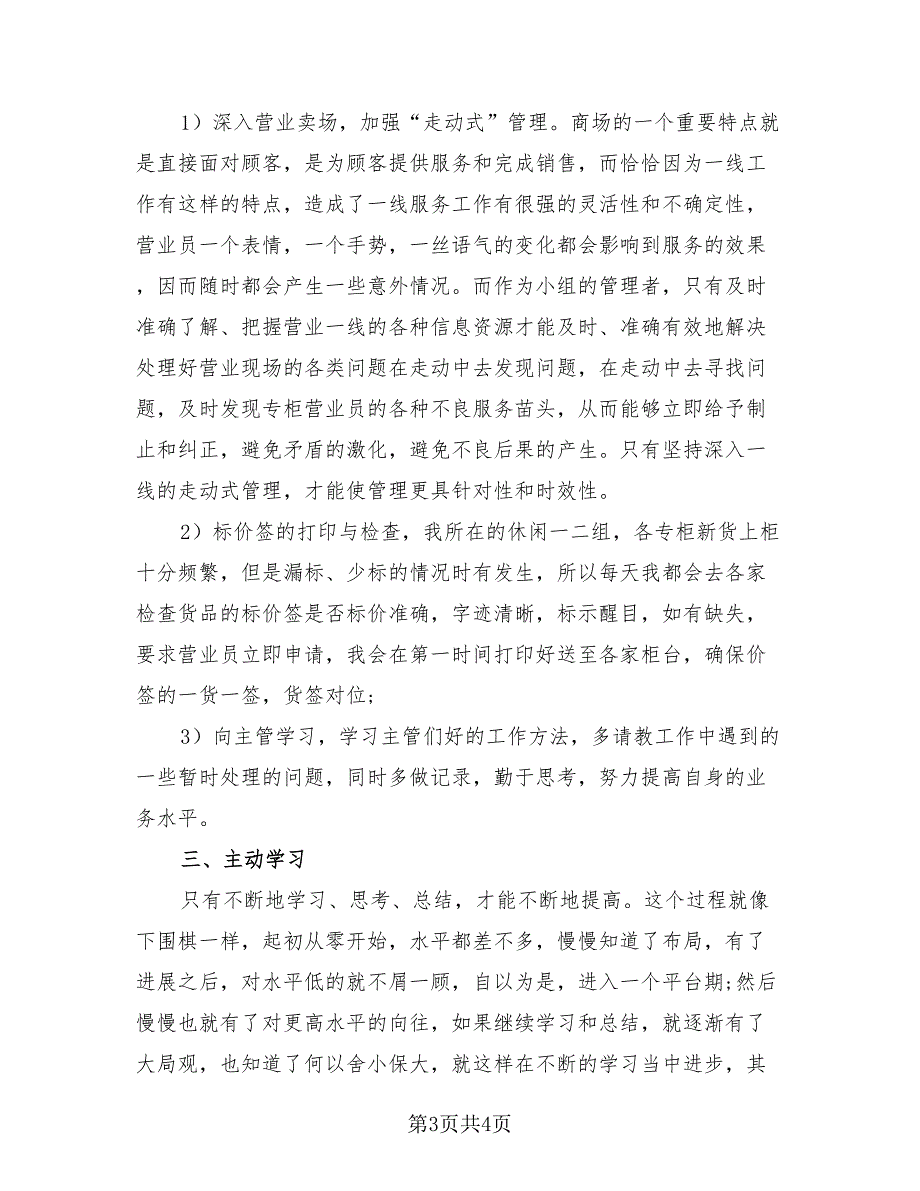 1）深入营业卖场，加强“走动式”管理。商场的一个重要特点就
是直接面对顾客，是为顾客提供服务和完成销售，而恰恰因为一线工
作有这样的特点，造成了一线服务工作有很强的灵活性和不确定性，
营业员一个表情，一个手势，一丝语气的变化都会影响到服务的效果
，因而随时都会产生一些意外情况。而作为小组的管理者，只有及时
准确了解、把握营业一线的各种信息资源才能及时、准确有效地解决
处理好营业现场的各类问题在走动中去发现问题，在走动中去寻找问
题，及时发现专柜营业员的各种不良服务苗头，从而能够立即给予制
止和纠正，避免矛盾的激化，避免不良后果的产生。只有坚持深入一
线的走动式管理，才能使管理更具针对性和时效性。
2）标价签的打印与检查，我所在的休闲一二组，各专柜新货上柜
十分频繁，但是漏标、少标的情况时有发生，所以每天我都会去各家
检查货品的标价签是否标价准确，字迹清晰，标示醒目，如有缺失，
要求营业员立即申请，我会在第一时间打印好送至各家柜台，确保价
签的一货一签，货签对位;
3）向主管学习，学习主管们好的工作方法，多请教工作中遇到的
一些暂时处理的问题，同时多做记录，勤于思考，努力提高自身的业
务水平。
三、主动学习
只有不断地学习、思考、总结，才能不断地提高。这个过程就像
下围棋一样，起初从零开始，水平都差不多，慢慢知道了布局，有了
进展之后，对水平低的就不屑一顾，自以为是，进入一个平台期;然后
慢慢也就有了对更高水平的向往，如果继续学习和总结，就逐渐有了
大局观，也知道了何以舍小保大，就这样在不断的学习当中进步，其
第3页共4页